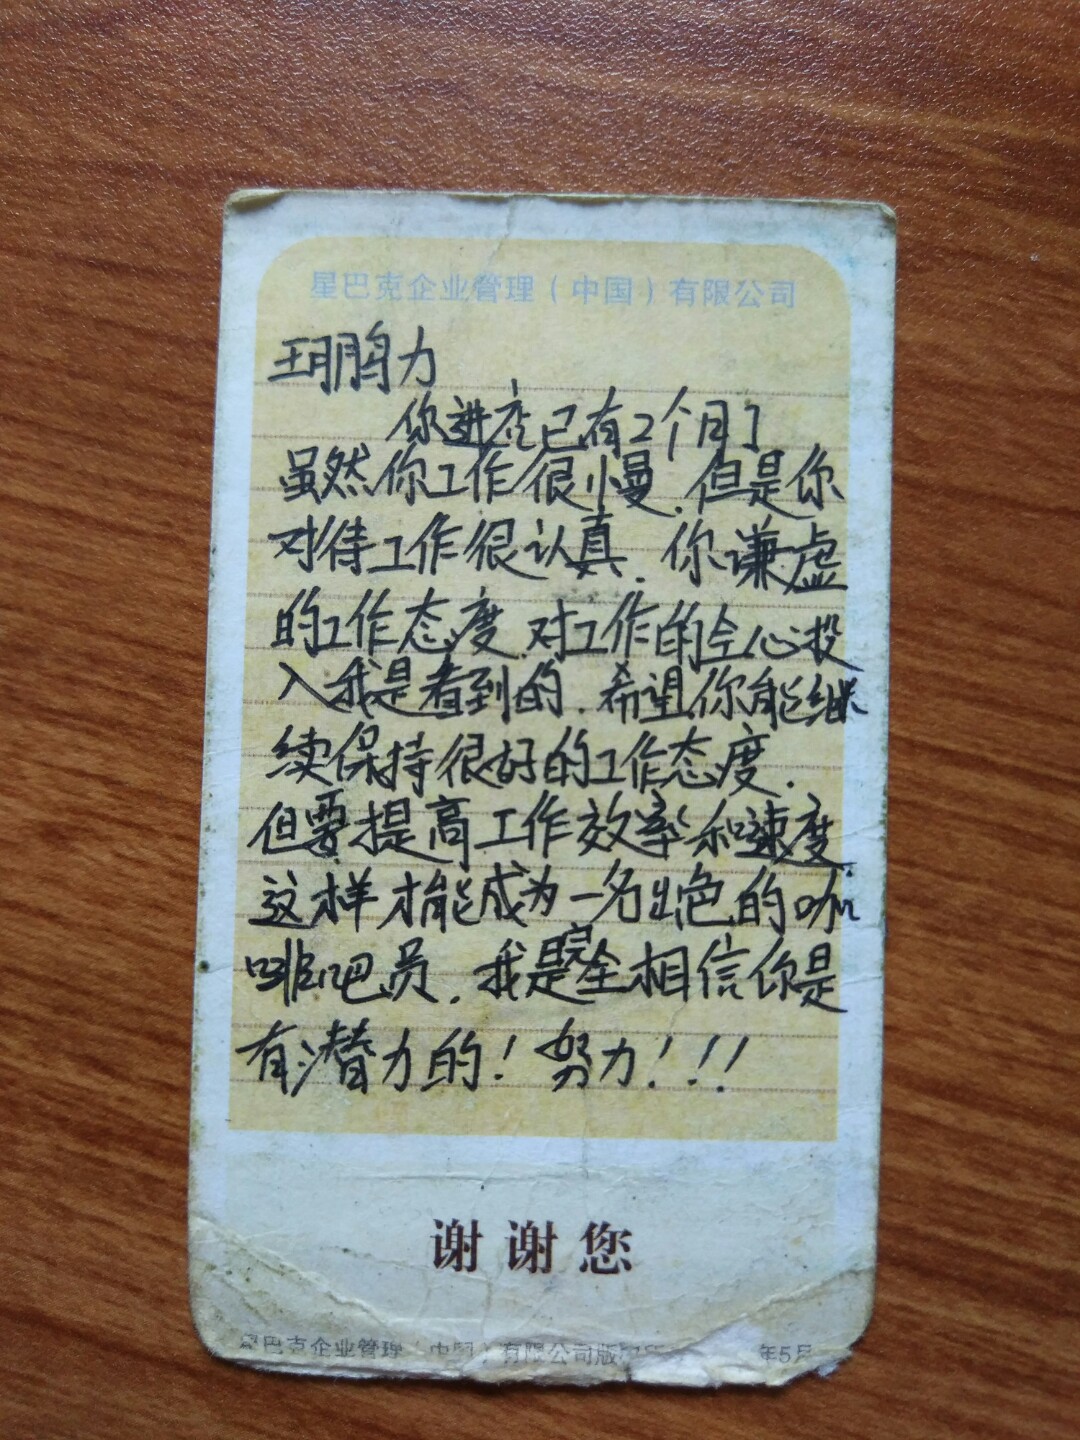 星巴克企业管理（中国）有限公司
王鹏力
你进店已有2个月了
虽然你工作很慢.但是你
对待工作很认真.你谦虚
的工作态度.对工作的全心投
入我是看到的.希望你能继
续保持很好的工作态度.
但要提高工作效率和速度.
这样才能成为一名出色的咖
啡吧员.我是完全相信你是
有潜力的！努力！！！
谢谢您
星巴克企业管理（中国）有限公司版 年5月